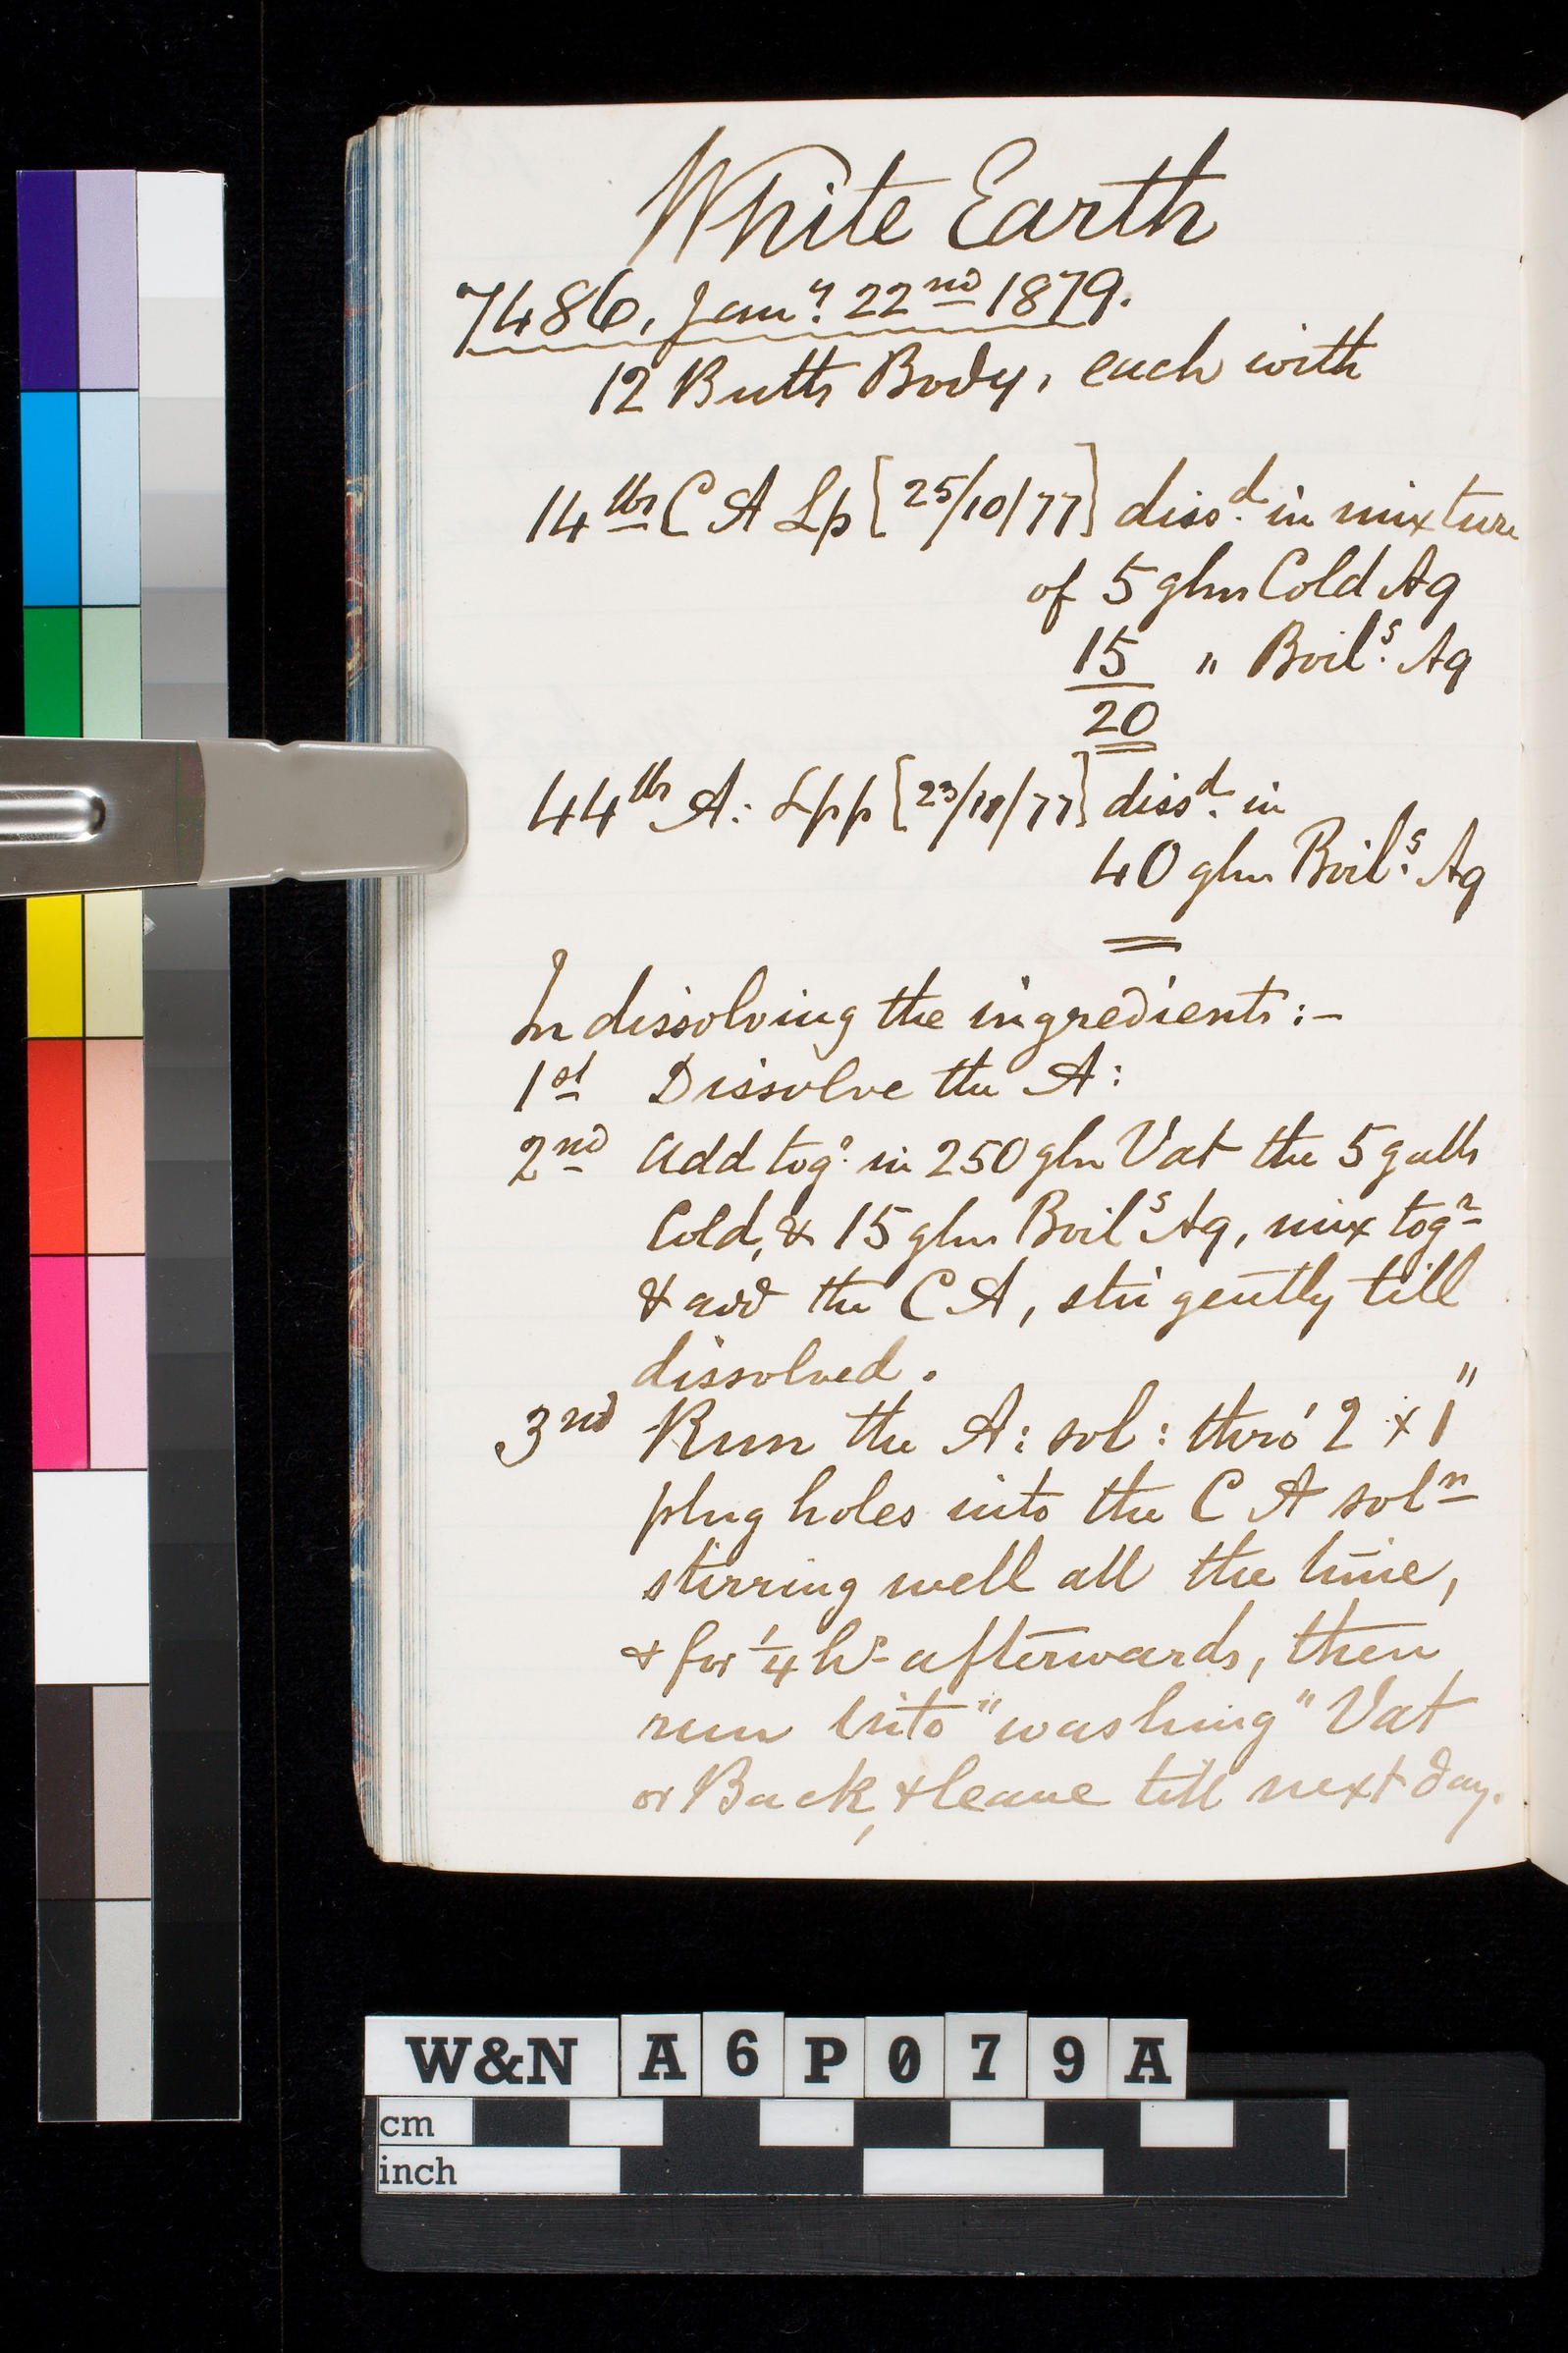 White Earth
7486, Jany. 22nd 1879.
12 Butts Body, each with
14 lbs C A Lp [25/10/77] dissd. in mixture
of 5 glns Cold Aq
15 " Boilg. Aq
20
44 lbs A: Lpp [23/10/77] dissd. in
40 glns Boilg. Aq
In dissolving the ingredients:-
1st Dissolve the A:
2nd Add togr. in 250 gln Vat the 5 galls
Cold, & 15 glns Boilg Aq, mix togr
& add the C A, stir gently till
dissolved.
3nd Run the A: sol: thro' 2 x 1"
plug holes into the C A soln
stirring well all the time,
& for 1/4 hr afterwards, then
run into "washing" Vat
or Back, & leave till next day.
W&N A6P079A
cm
inch